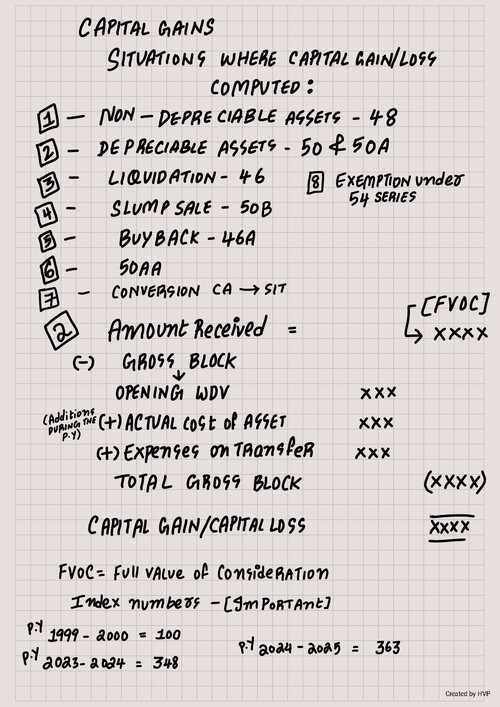 CAPITAL GAINS
SITUATIONS WHERE CAPITAL GAIN/LOSS
COMPUTED :
1 - NON - DEPRECIABLE ASSETS - 48
2 - DEPRECIABLE ASSETS - 50 & 50A
3 - LIQUIDATION - 46
8 EXEMPTION under
54 SERIES
4 - SLUMP SALE - 50B
5 - BUYBACK - 46A
6 - 50AA
7 - CONVERSION CA → SIT
2 Amount Received = [FVOC]
→ XXXX
(-) GROSS BLOCK
↓
OPENING WDV XXX
(Additions DURING THE P.Y) (+) ACTUAL cost of ASSET XXX
(+) Expenses on TRANSfeR XXX
TOTAL GROSS BLOCK (XXXX)
CAPITAL GAIN/CAPITAL LOSS XXXX
FVOC = Full VAlue of ConsideRATION
Index numbers - [ImPORTAnt]
P.Y 1999 - 2000 = 100
P.Y 2024 - 2025 = 363
P.Y 2023 - 2024 = 348
Created by HVP